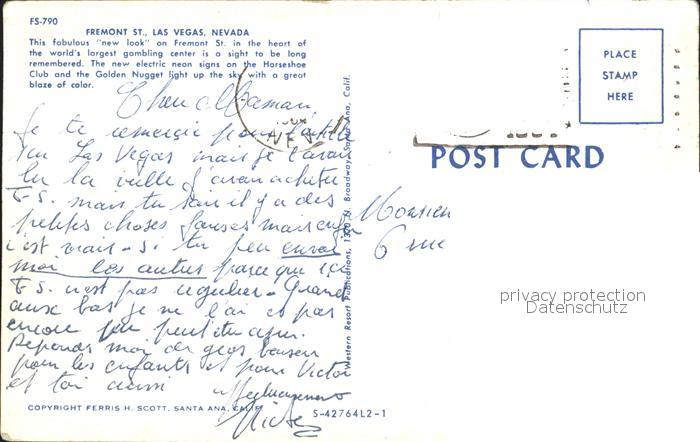 FS-790
FREMONT ST., LAS VEGAS, NEVADA
This fabulous "new look" on Fremont St. in the heart of
the world's largest gambling center is a sight to be long
remembered. The new electric neon signs on the Horseshoe
Club and the Golden Nugget light up the sky with a great
blaze of color.
PLACE
STAMP
HERE
POST CARD
Maman
Je te remercie pour
Las Vegas mais je l'avais
lu la veille j'avais acheté
F.S. mais tu sais il y a des
petites choses fausses mais
c'est vrai - si tu peu envoi
moi les autres parce que ici
F.S. n'est pas regulier - Grand
je ne l'ai pas
encore peu
Reponds moi de gros baisers
pour les enfants et pour Victor
et toi aussi
Affectueusement
Monsieur
6 rue
Western Resort Publications, 1320 N. Broadway, Santa Ana, Calif.
privacy protection
Datenschutz
COPYRIGHT FERRIS H. SCOTT, SANTA ANA, CALIF.
S-42764L2-1